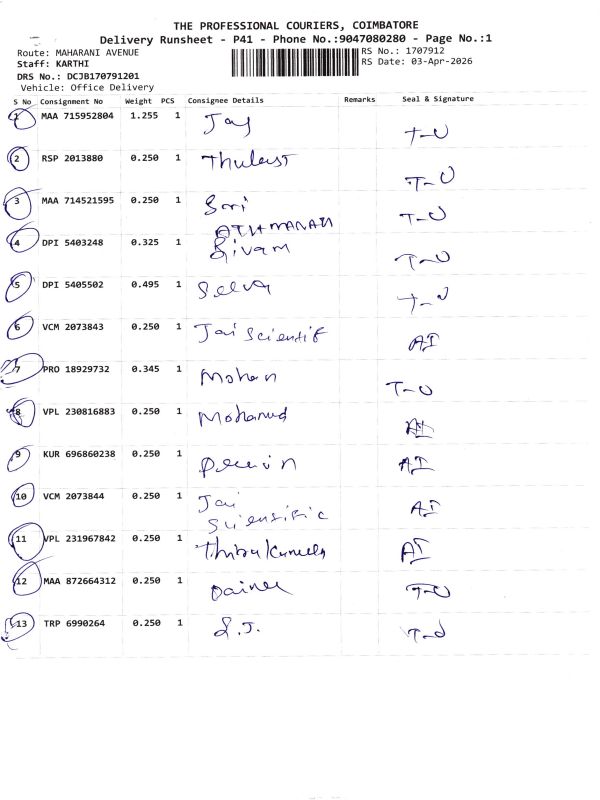 THE PROFESSIONAL COURIERS, COIMBATORE
Delivery Runsheet - P41 - Phone No.:9047080280 - Page No.:1
Route: MAHARANI AVENUE RS No.: 1707912
Staff: KARTHI RS Date: 03-Apr-2026
DRS No.: DCJB170791201
Vehicle: Office Delivery
S No Consignment No Weight PCS Consignee Details Remarks Seal & Signature
1 MAA 715952804 1.255 1 Jay T-U
2 RSP 2013880 0.250 1 Thulasi T-U
3 MAA 714521595 0.250 1 Sri T-U
ATHMANAN
4 DPI 5403248 0.325 1 Sivam T-U
5 DPI 5405502 0.495 1 Selva T-U
6 VCM 2073843 0.250 1 Jai Scientific AI
7 PRO 18929732 0.345 1 Mohan T-U
8 VPL 230816883 0.250 1 Mohamed AI
9 KUR 696860238 0.250 1 AI
10 VCM 2073844 0.250 1 Jai AI
Scientific
11 VPL 231967842 0.250 1 AI
12 MAA 872664312 0.250 1 T-U
13 TRP 6990264 0.250 1 S.J. T-U